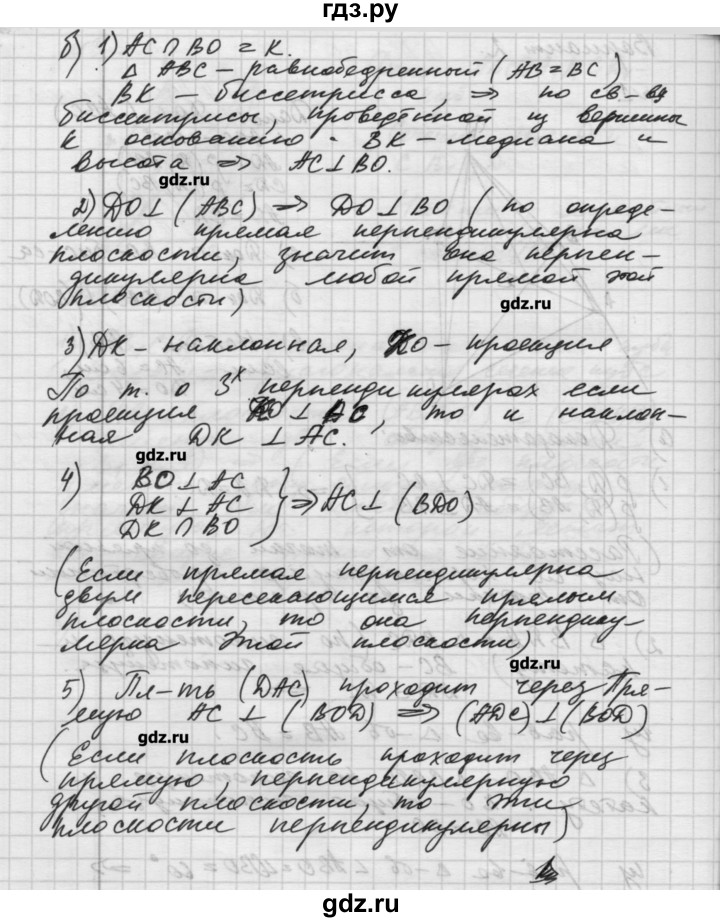 гдз.ру
б) 1) AC ∩ BO = K.
△ ABC – равнобедренный (AB = BC)
BK – биссетрисса, ⇒ по св-ву
биссектрисы, проведённой из вершины
к основанию - BK – медиана и
высота ⇒ AC ⊥ BO.
gdz.ru
2) DO ⊥ (ABC) ⇒ DO ⊥ BO (по опреде-
лению прямая перпендикулярна
плоскости, значит она перпен-
дикулярна любой прямой этой
плоскости)
gdz.ru
3) DK – наклонная, KO – проекция
По т. о 3х перпендикулярах если
проекция KO ⊥ AC, то и наклон-
ная DK ⊥ AC.
gdz.ru
4) BO ⊥ AC
DK ⊥ AC } ⇒ AC ⊥ (BDO)
DK ∩ BO
(Если прямая перпендикулярна
двум пересекающимся прямым
плоскости, то она перпендику-
лярна этой плоскости)
gdz.ru
5) Пл-ть (DAC) проходит через Пря-
мую AC ⊥ (BOD) ⇒ (ADC) ⊥ (BOD)
gdz.ru
(Если плоскость проходит через
прямую, перпендикулярную
другой плоскости, то эти
плоскости перпендикулярны)
gdz.ru